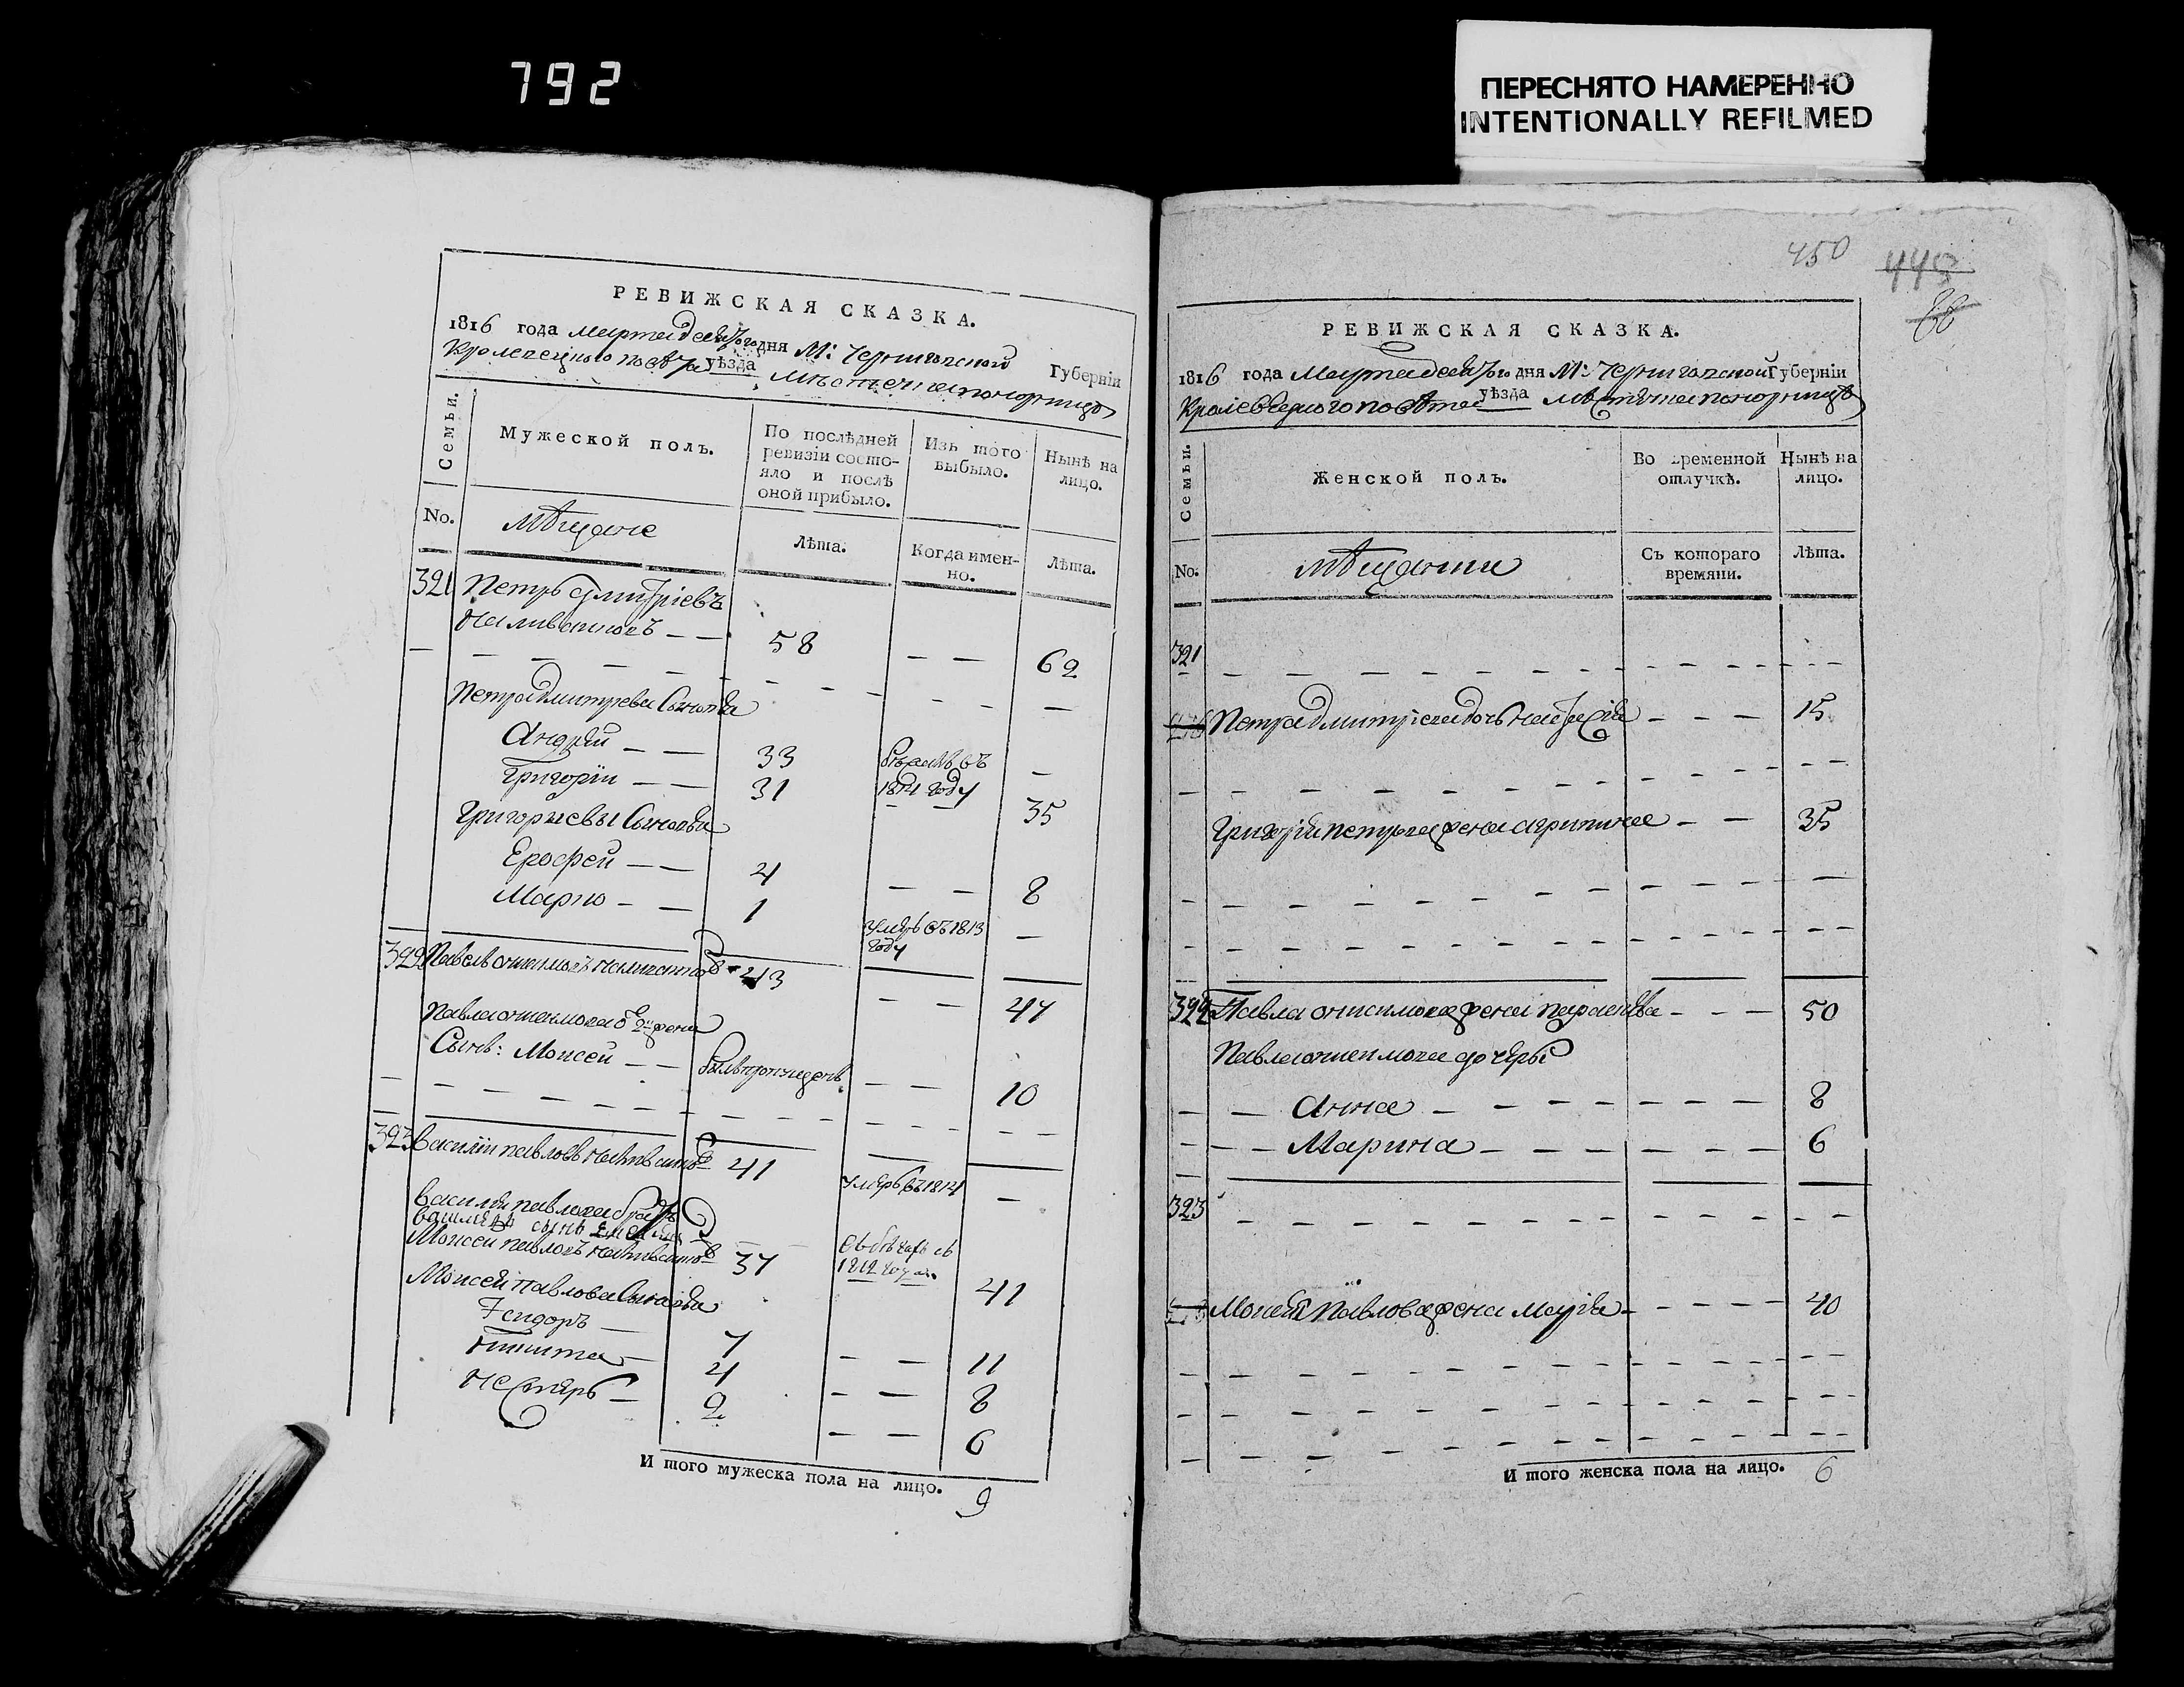 792
ПЕРЕСНЯТО НАМЕРЕННО
INTENTIONALLY REFILMED
РЕВИЖСКАЯ СКАЗКА.
1816 года Марта дня М: Черниговской Губерніи
Кролевецкого повѣта уѣзда
Семьи.
Мужеской полъ.
По послѣдней ревизіи состояло и послѣ оной прибыло.
Изъ того выбыло.
Нынѣ на лицо.
No.
мѣщане
Лѣта.
Когда именно.
Лѣта.
321 Петръ Дмитріевъ
58 62
Петра Дмитрева Сыновья
Андрей 33
1814 году
Григорій 31 35
Григориевы Сыновья
Ерофей 4 8
Марко 1 умеръ въ 1813 году
322 Павелъ Онисимовъ 43 47
Павла Онисимова
Сынъ: Моисей 10
323 Василій Павловъ 41 умеръ въ 1814
Василія Павлова братъ
Моисей Павловъ 37 1812 году 41
Моисея Павлова Сыновья
Феидоръ 7 11
Никита 4 8
Нестеръ 2 6
И того мужеска пола на лицо. 9
450
448
88
РЕВИЖСКАЯ СКАЗКА.
1816 года Марта дня М: Черниговской Губерніи
Кролевецкого повѣта уѣзда
Семьи.
Женской полъ.
Во временной отлучкѣ.
Нынѣ на лицо.
No.
мѣщанки
Съ котораго времяни.
Лѣта.
321
Петра Дмитріева дочь 15
Григорія Петрова жена Агрипина 35
322 Павла Онисимова жена Параскева 50
Павла Онисимова дочери
Анна 8
Марина 6
323
Моисея Павлова жена Марія 40
И того женска пола на лицо. 6